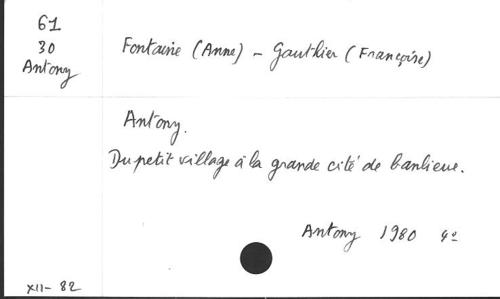 61
30
Antony
Fontaine (Anne) - Gauthier (Françoise)
Antony.
Du petit village à la grande cité de banlieue.
Antony 1980 4º
XII - 82